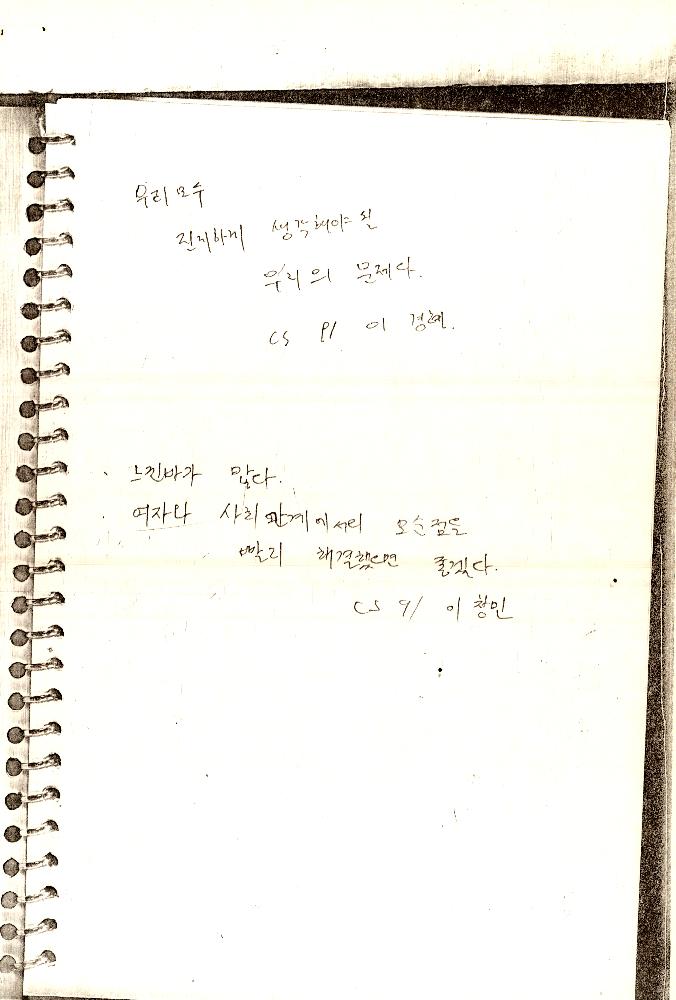 우리 모두
진지하게 생각해야 할
우리의 문제다.
CS 91 이 경혜.
· 느낀바가 많다.
· 여자와 사회관계에서의 모순점을
빨리 해결했으면 좋겠다.
CS 91 이창민